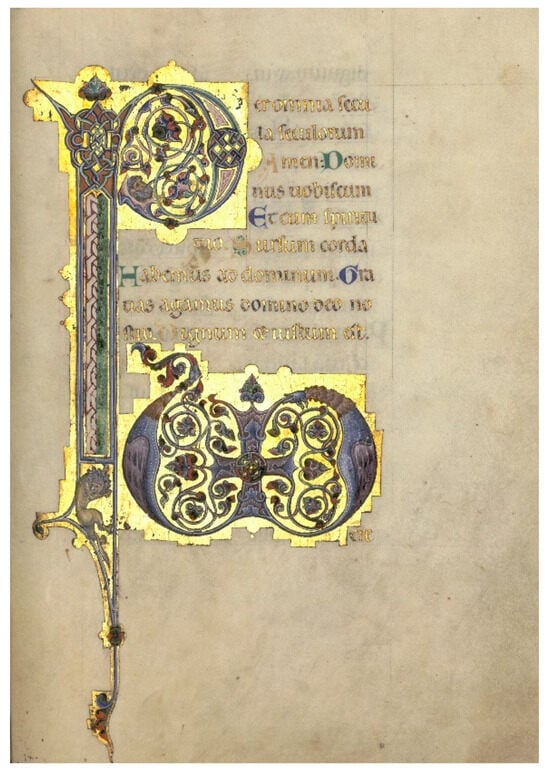 Per omnia secu
la seculorum
Amen. Domi
nus uobiscum
Et cum spiritu
tuo. Sursum corda
Habemus ad dominum. Gra
tias agamus domino deo no
stro. Dignum et iustum est.